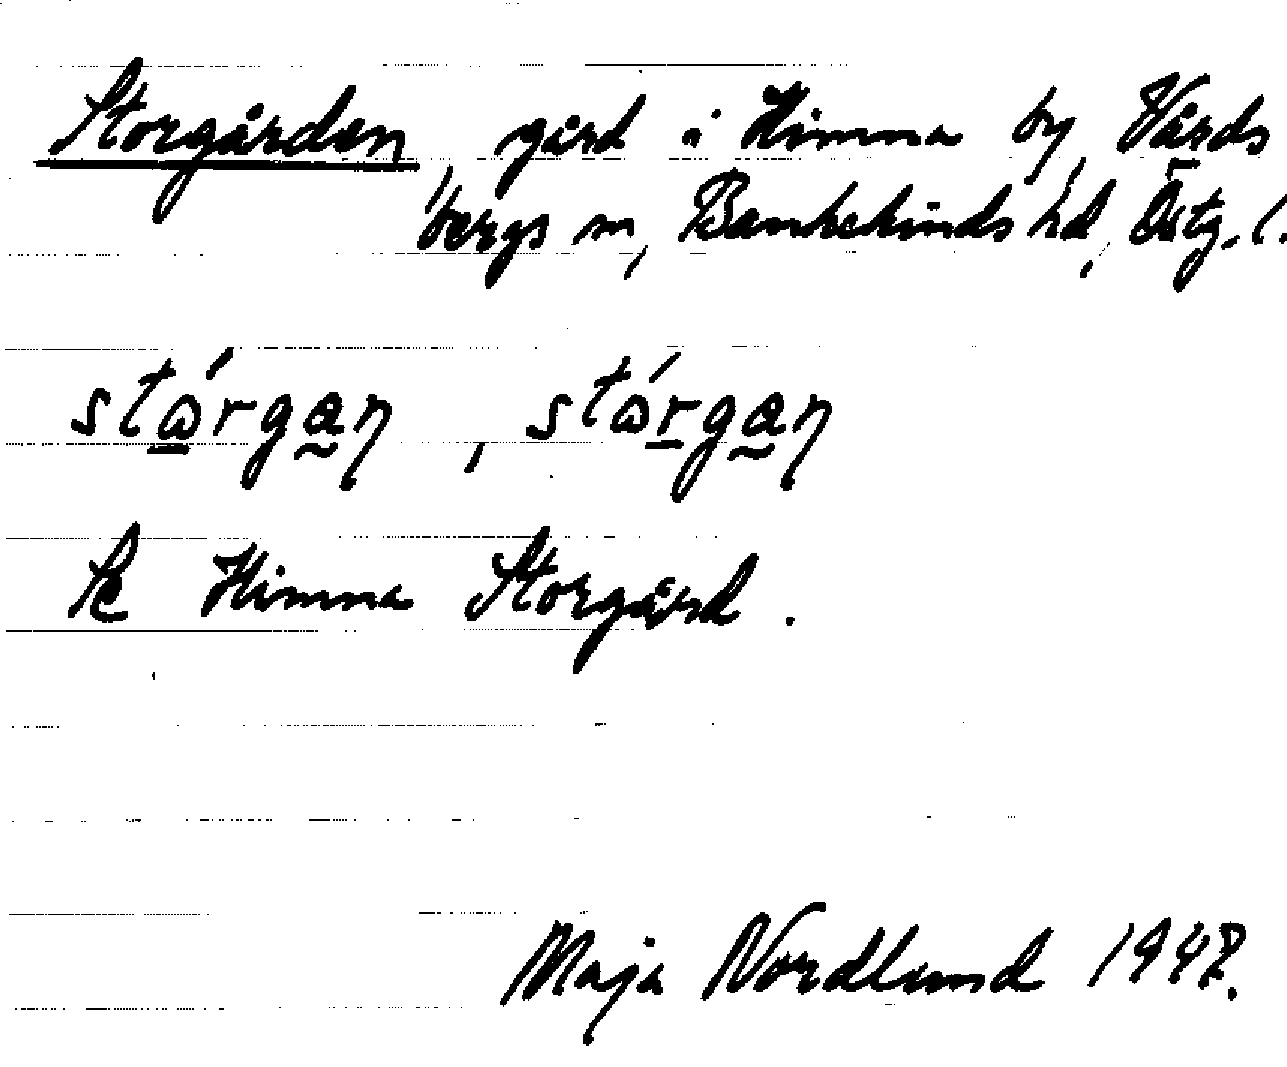 Storgården, gård i Himna by, Vårds
bergs sn, Bankekinds hd, Östg. l.
stɷ́rgan, stɷ́rgan
Se Himna Storgård.
Maja Nordlund 1947.